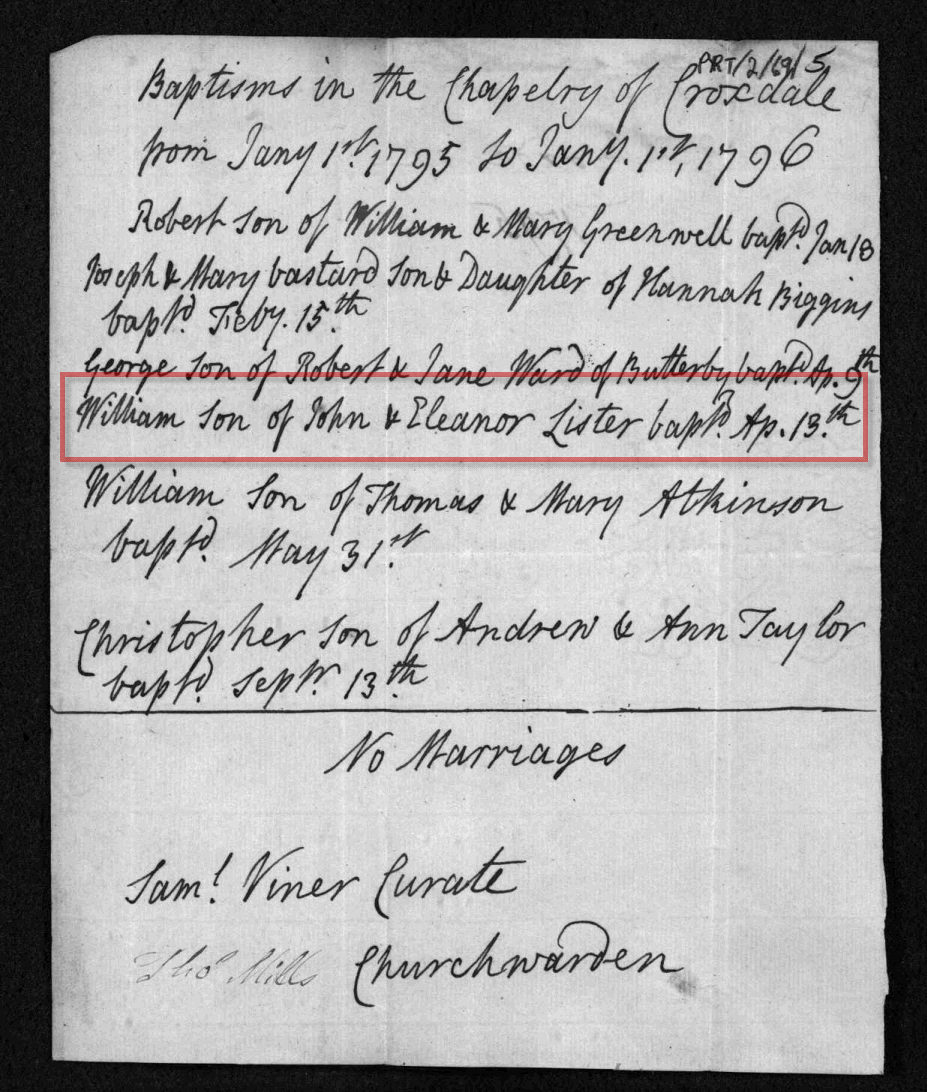 PRT/2/69/5
Baptisms in the Chapelry of Croxdale
from Jany 1st. 1795 to Jany. 1st, 1796
Robert Son of William & Mary Greenwell baptd. Jan 18
Joseph & Mary bastard Son & Daughter of Hannah Biggins
baptd. Feby. 15.th
George Son of Robert & Jane Ward of Butterby baptd. Ap. 9th
William Son of John & Eleanor Lister baptd. Ap. 13.th
William Son of Thomas & Mary Atkinson
baptd. May 31st.
Christopher Son of Andrew & Ann Taylor
baptd. Septr. 13.th
No Marriages
Saml. Viner Curate
Thos Mills Churchwarden